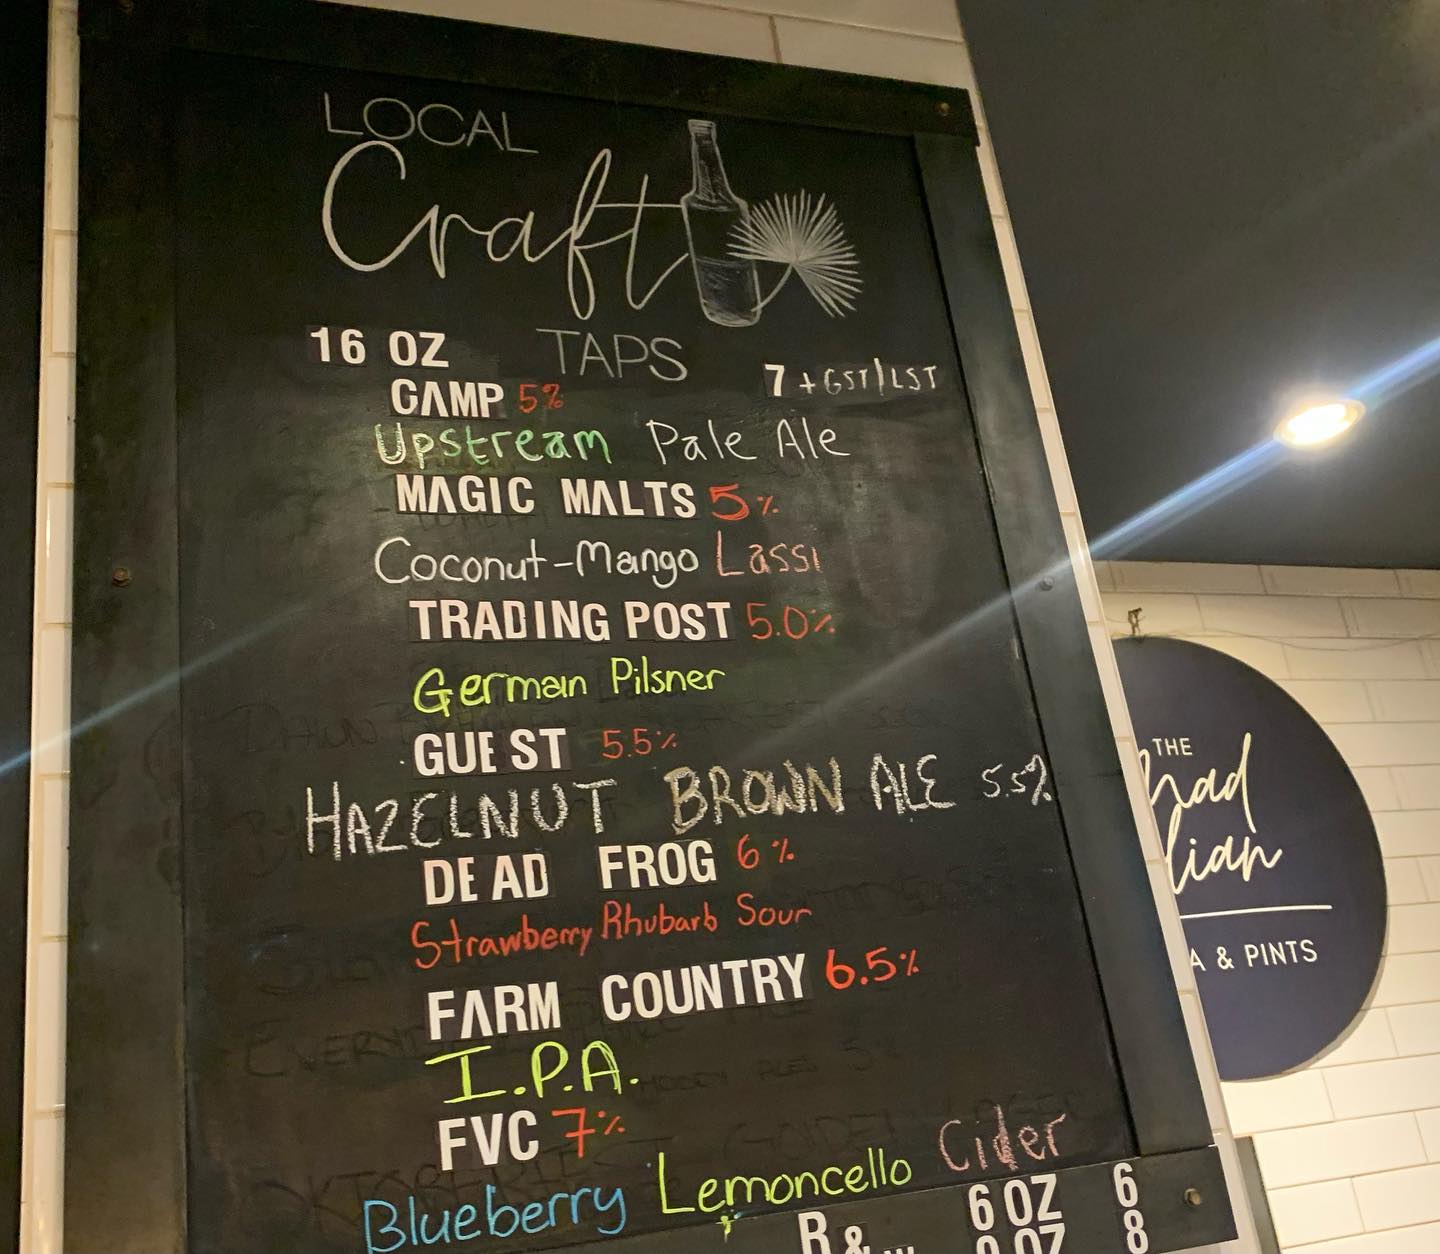 LOCAL
Craft
TAPS
16 OZ
7 + GST/LST
CAMP 5%
Upstream Pale Ale
MAGIC MALTS 5%
Coconut-Mango Lassi
TRADING POST 5.0%
German Pilsner
GUEST 5.5%
HAZELNUT BROWN ALE 5.5%
DEAD FROG 6%
Strawberry Rhubarb Sour
FARM COUNTRY 6.5%
I.P.A.
FVC 7%
Blueberry Lemoncello Cider
6 OZ 6
8
THE
& PINTS